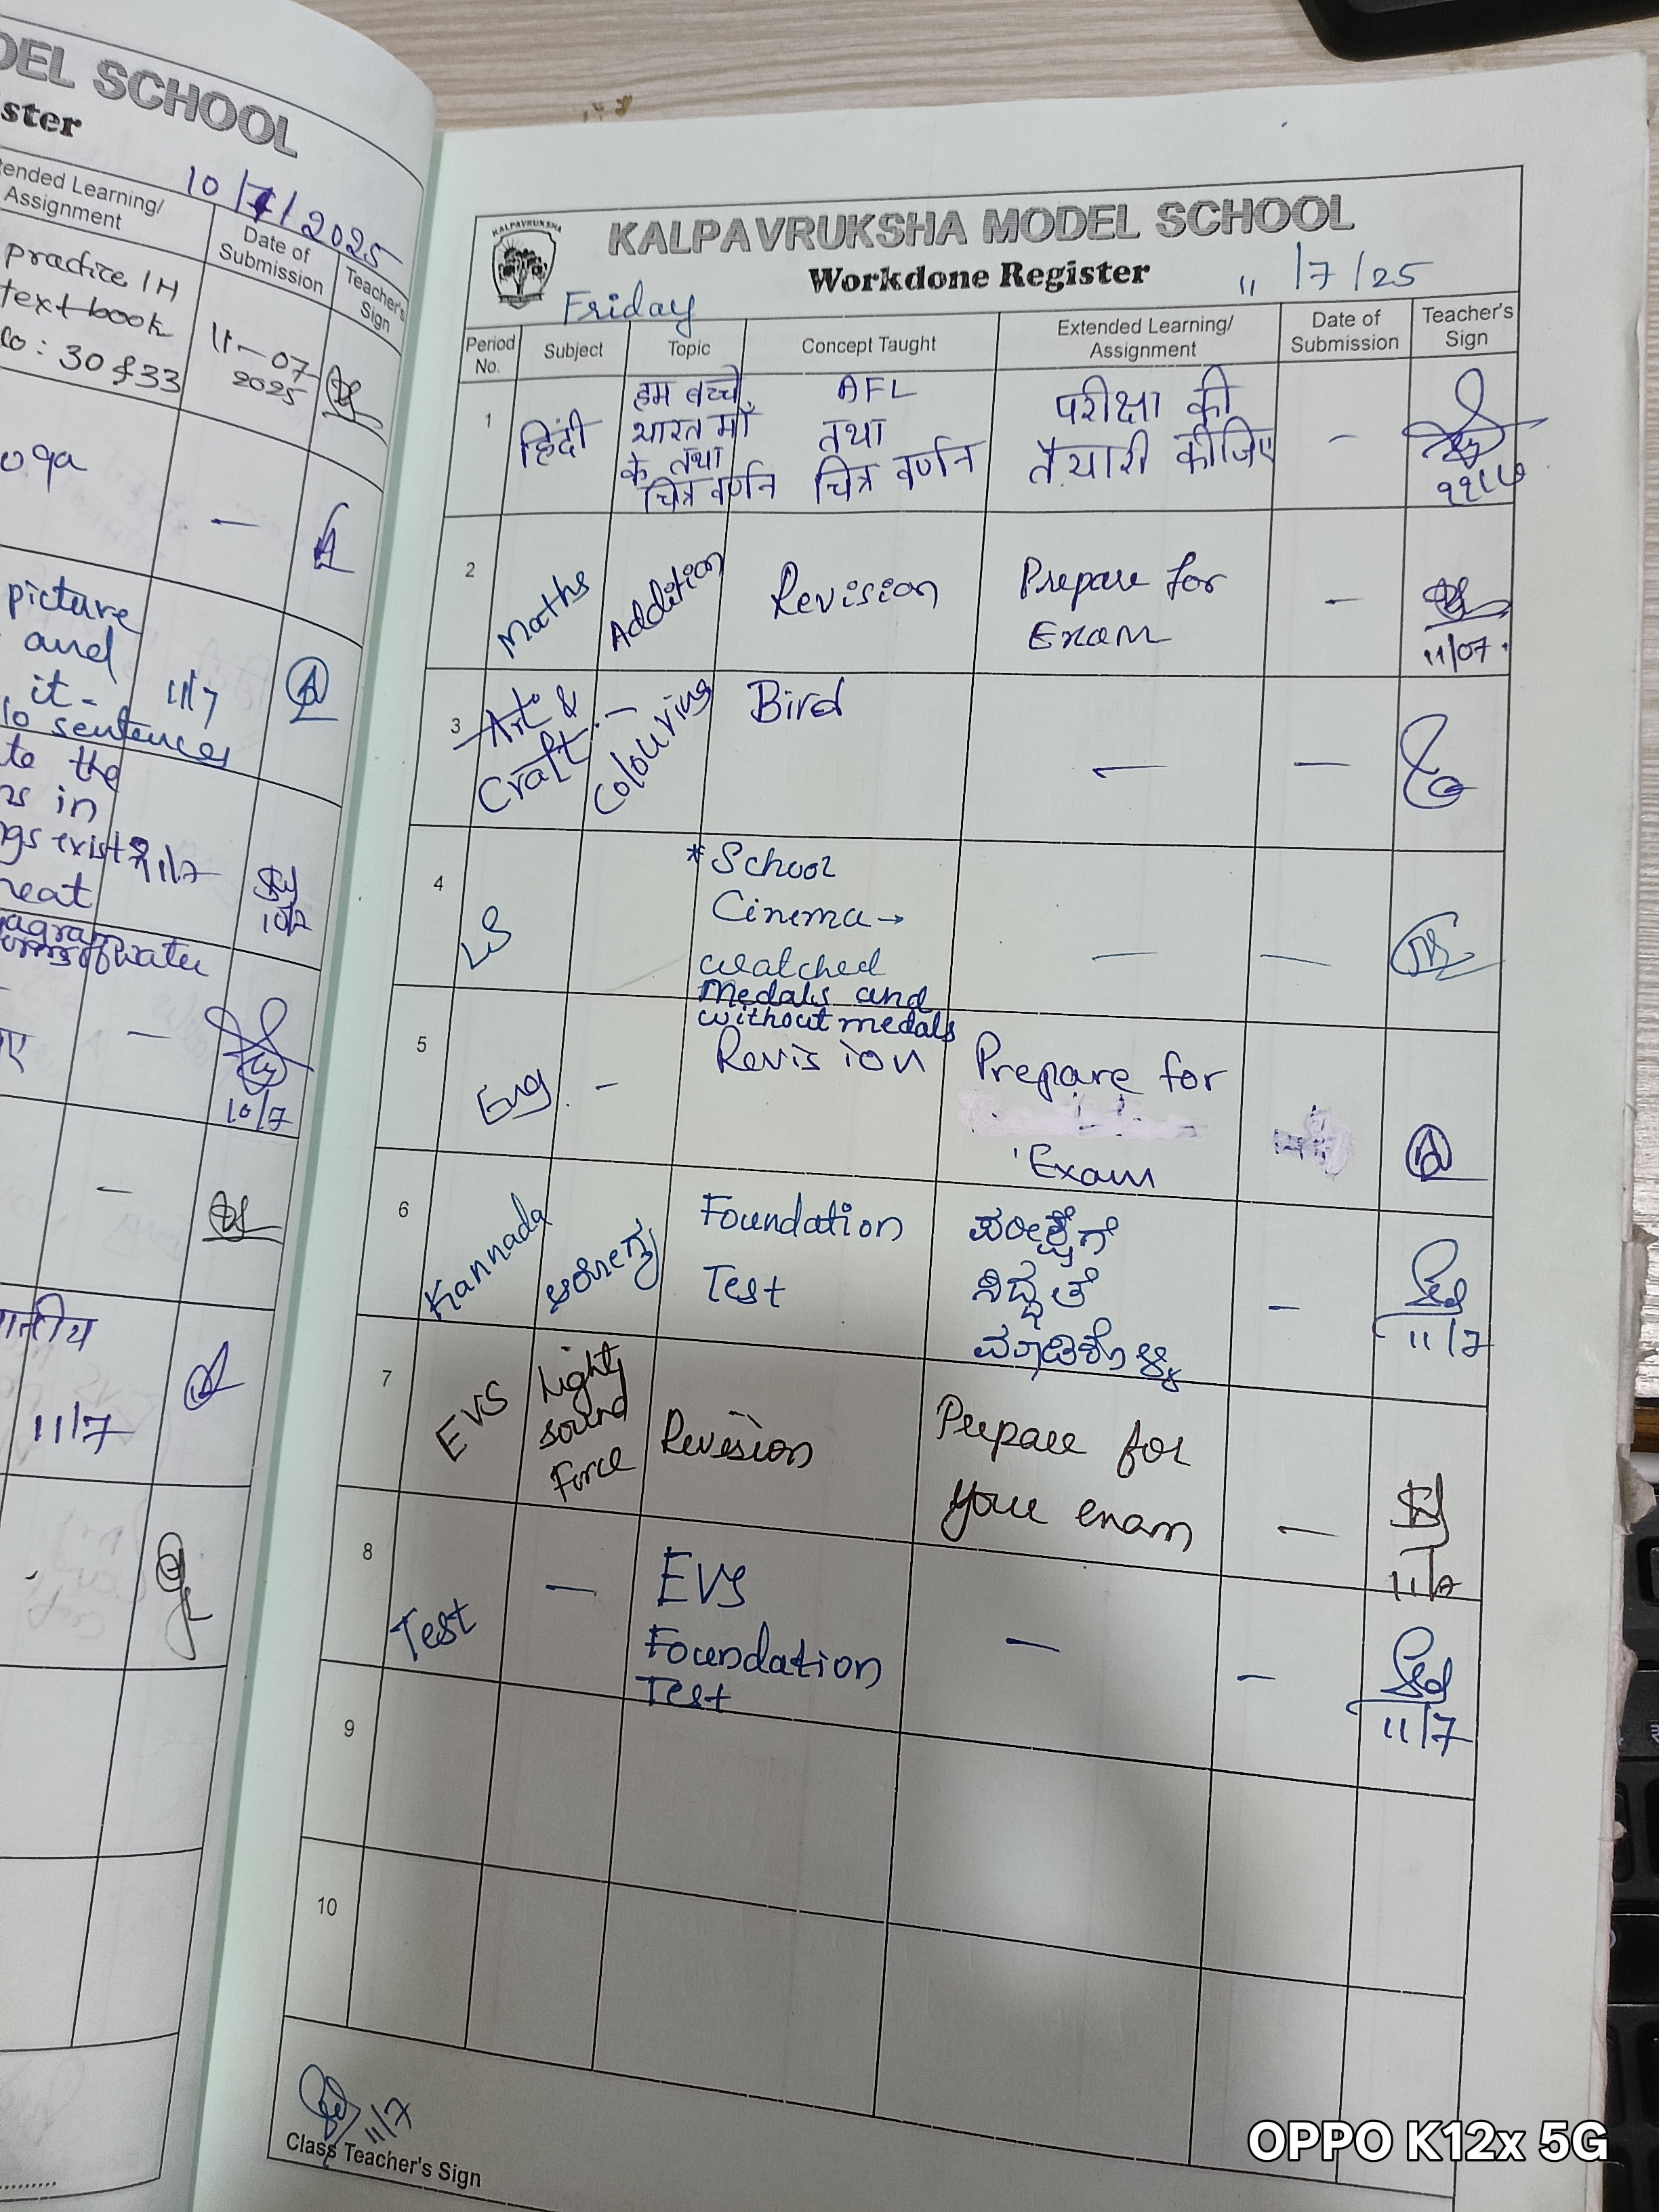 DEL SCHOOL
ster
10/7/2025
tended Learning/
Assignment
Date of
Submission
Teacher's
Sign
practice IH
text book
o : 30 & 33
11-07
2025
oga
picture
and
it -
10 sentences
11/7
te the
ns in
ngs exist
11/7
neat
agram
of water
10/7
10/7
11/7
KALPAVRUKSHA
KALPAVRUKSHA MODEL SCHOOL
Workdone Register
Friday
11/7/25
Period
No.
Subject
Topic
Concept Taught
Extended Learning/
Assignment
Date of
Submission
Teacher's
Sign
1
हिंदी
हम बच्चे
भारत माँ
के तथा
चित्र वर्णन
AFL
तथा
चित्र वर्णन
परीक्षा की
तैयारी कीजिए
-
११/७
2
Maths
Addition
Revision
Prepare for
Exam
-
11/07.
3
Art &
Craft
Colouring
Bird
-
-
4
LS
*School
Cinema→
watched
Medals and
without medals
-
-
5
Eng
-
Revision
Prepare for
Exam
6
Kannada
ಆರೋಗ್ಯ
Foundation
Test
ಪರೀಕ್ಷೆಗೆ
ಸಿದ್ಧತೆ
-
11/7
7
EVS
Light,
sound
Force
Revision
Prepare for
your exam
-
11/7
8
Test
-
EVS
Foundation
Test
-
-
11/7
9
10
11/7
Class Teacher's Sign
OPPO K12x 5G